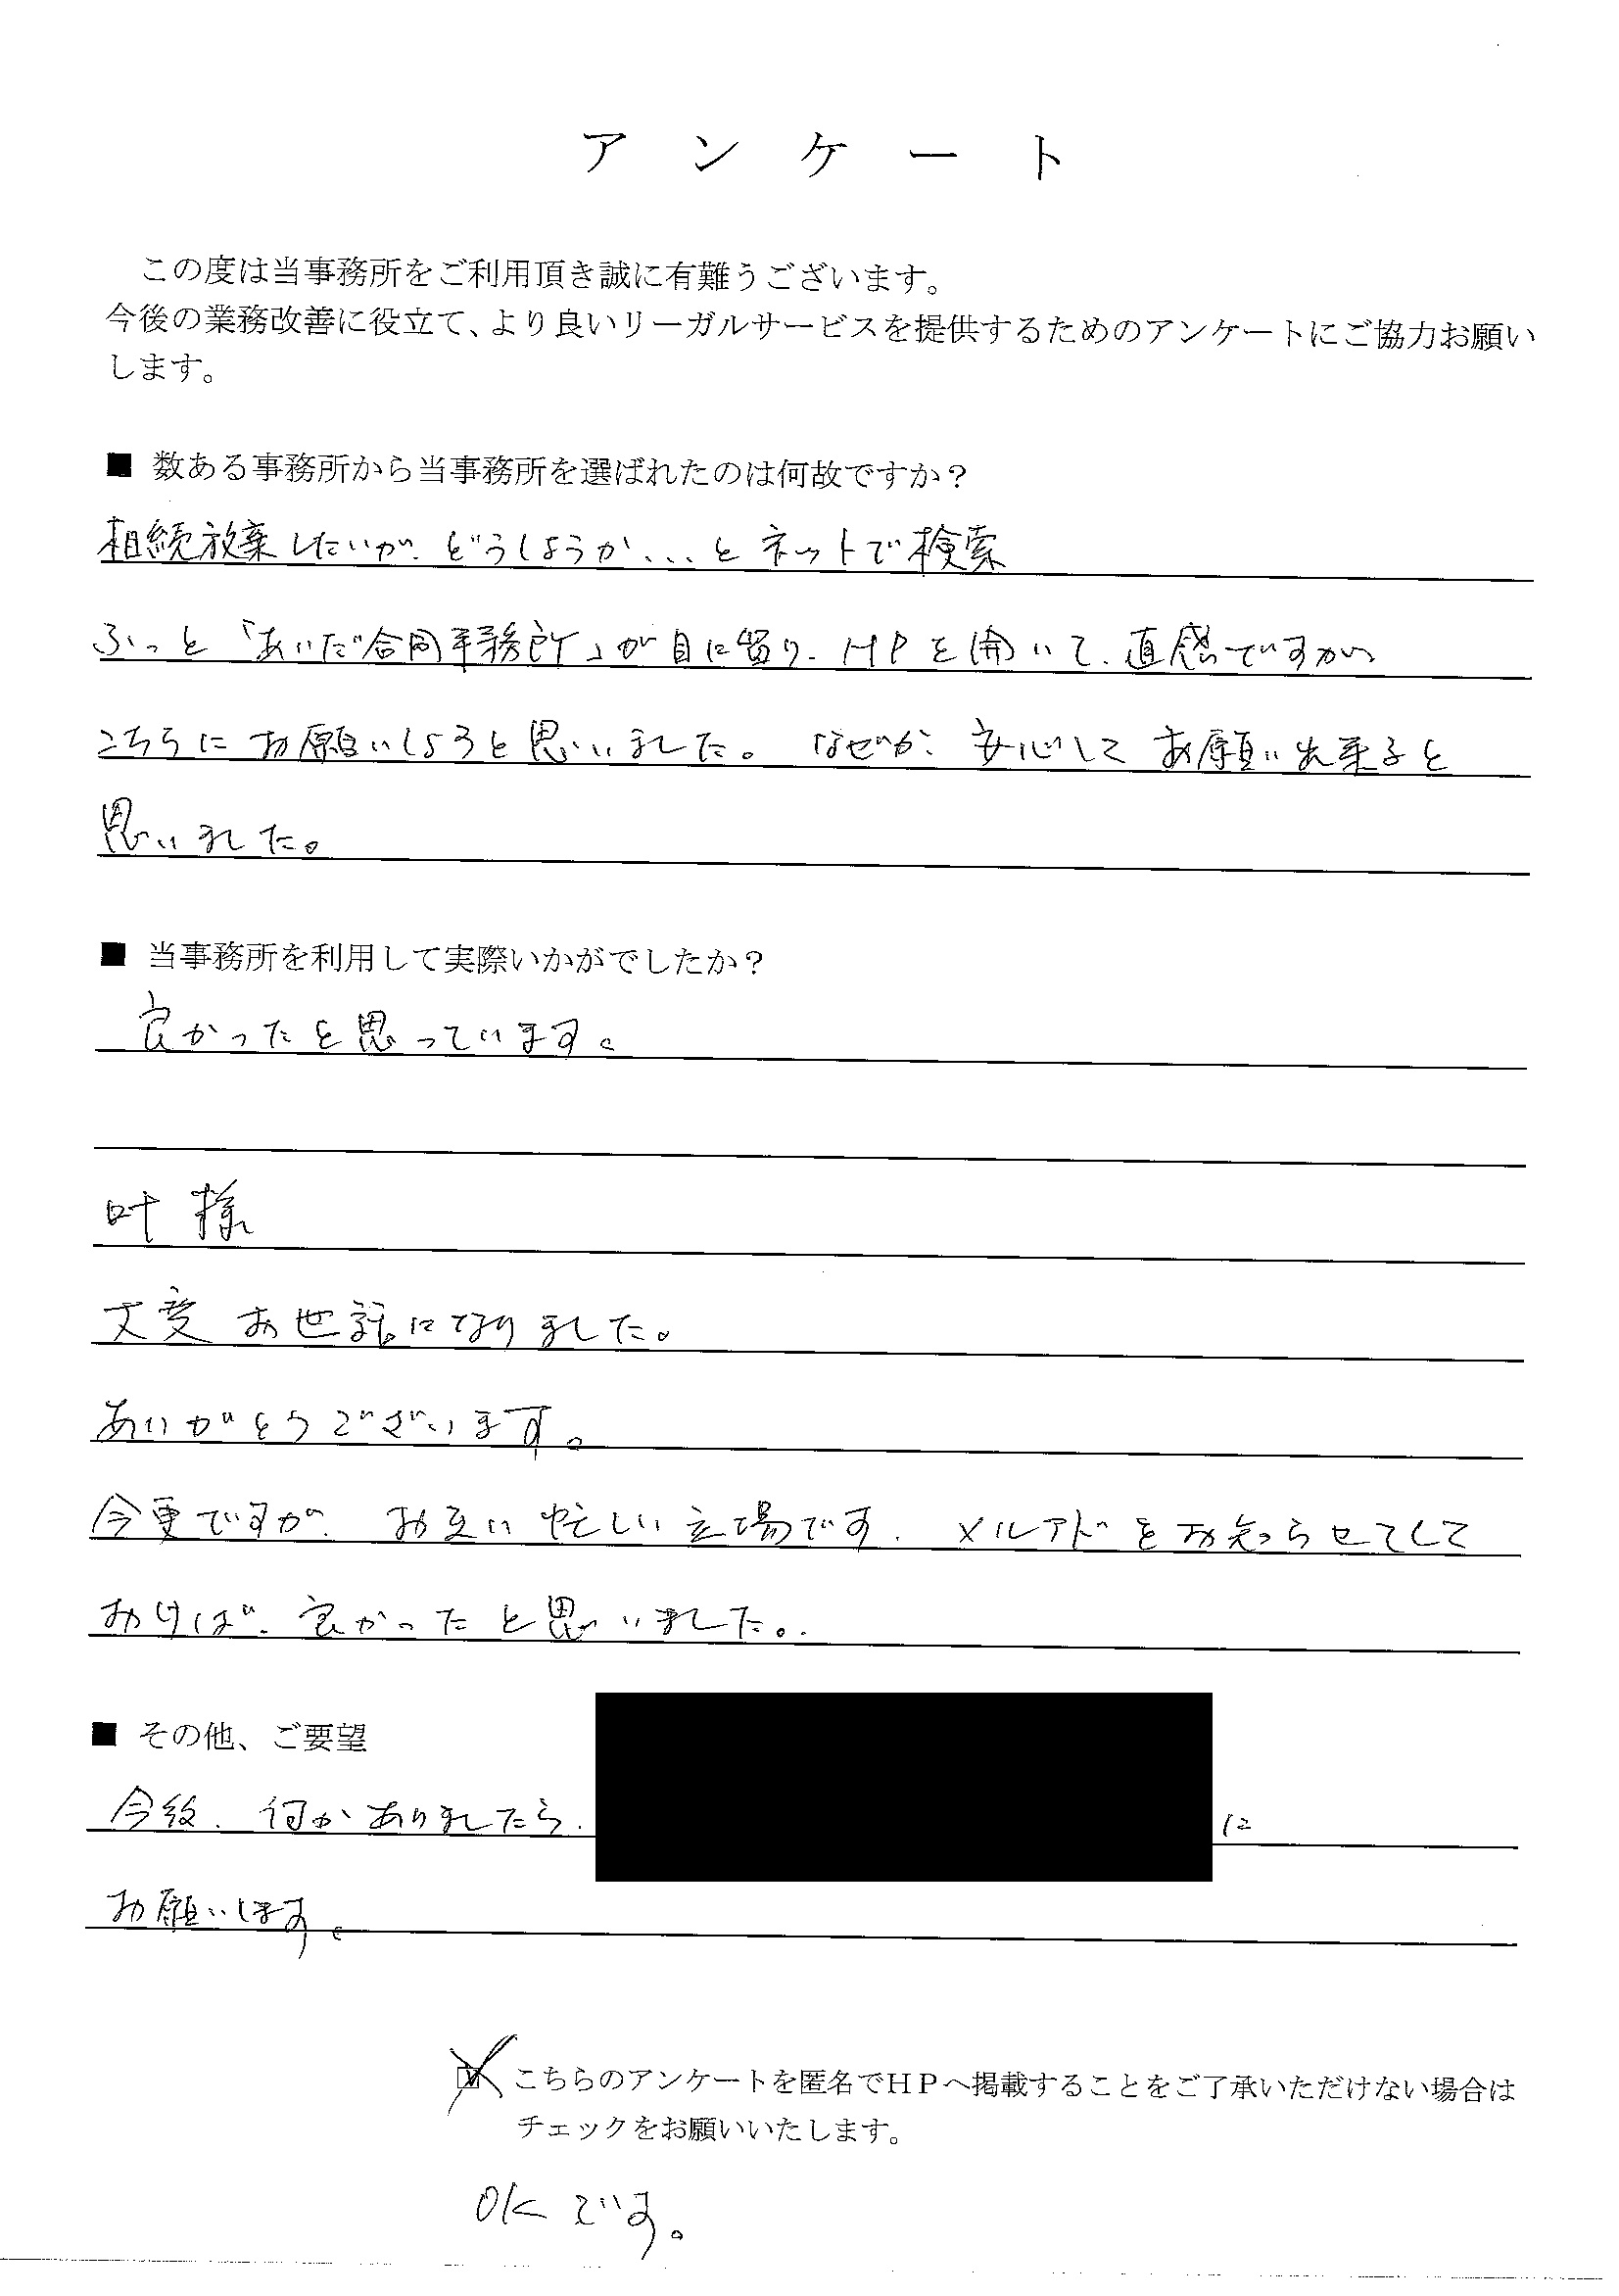 アンケート
この度は当事務所をご利用頂き誠に有難うございます。
今後の業務改善に役立て、より良いリーガルサービスを提供するためのアンケートにご協力お願い
します。
■ 数ある事務所から当事務所を選ばれたのは何故ですか?
相続放棄したいが、どうしようか...とネットで検索
ふっと「あいだ合同事務所」が目に留り、HPを開いて、直感ですが
こちらにお願いしようと思いました。なぜか、安心してお願い出来ると
思いました。
■ 当事務所を利用して実際いかがでしたか?
良かったと思っています。
叶様
大変お世話になりました。
ありがとうございます。
今更ですが、お互い忙しい立場です、メルアドをお知らせてして
おけば、良かったと思いました。
■ その他、ご要望
今後、何かありましたら、に
お願いします。
こちらのアンケートを匿名でHPへ掲載することをご了承いただけない場合は
チェックをお願いいたします。
OKです。